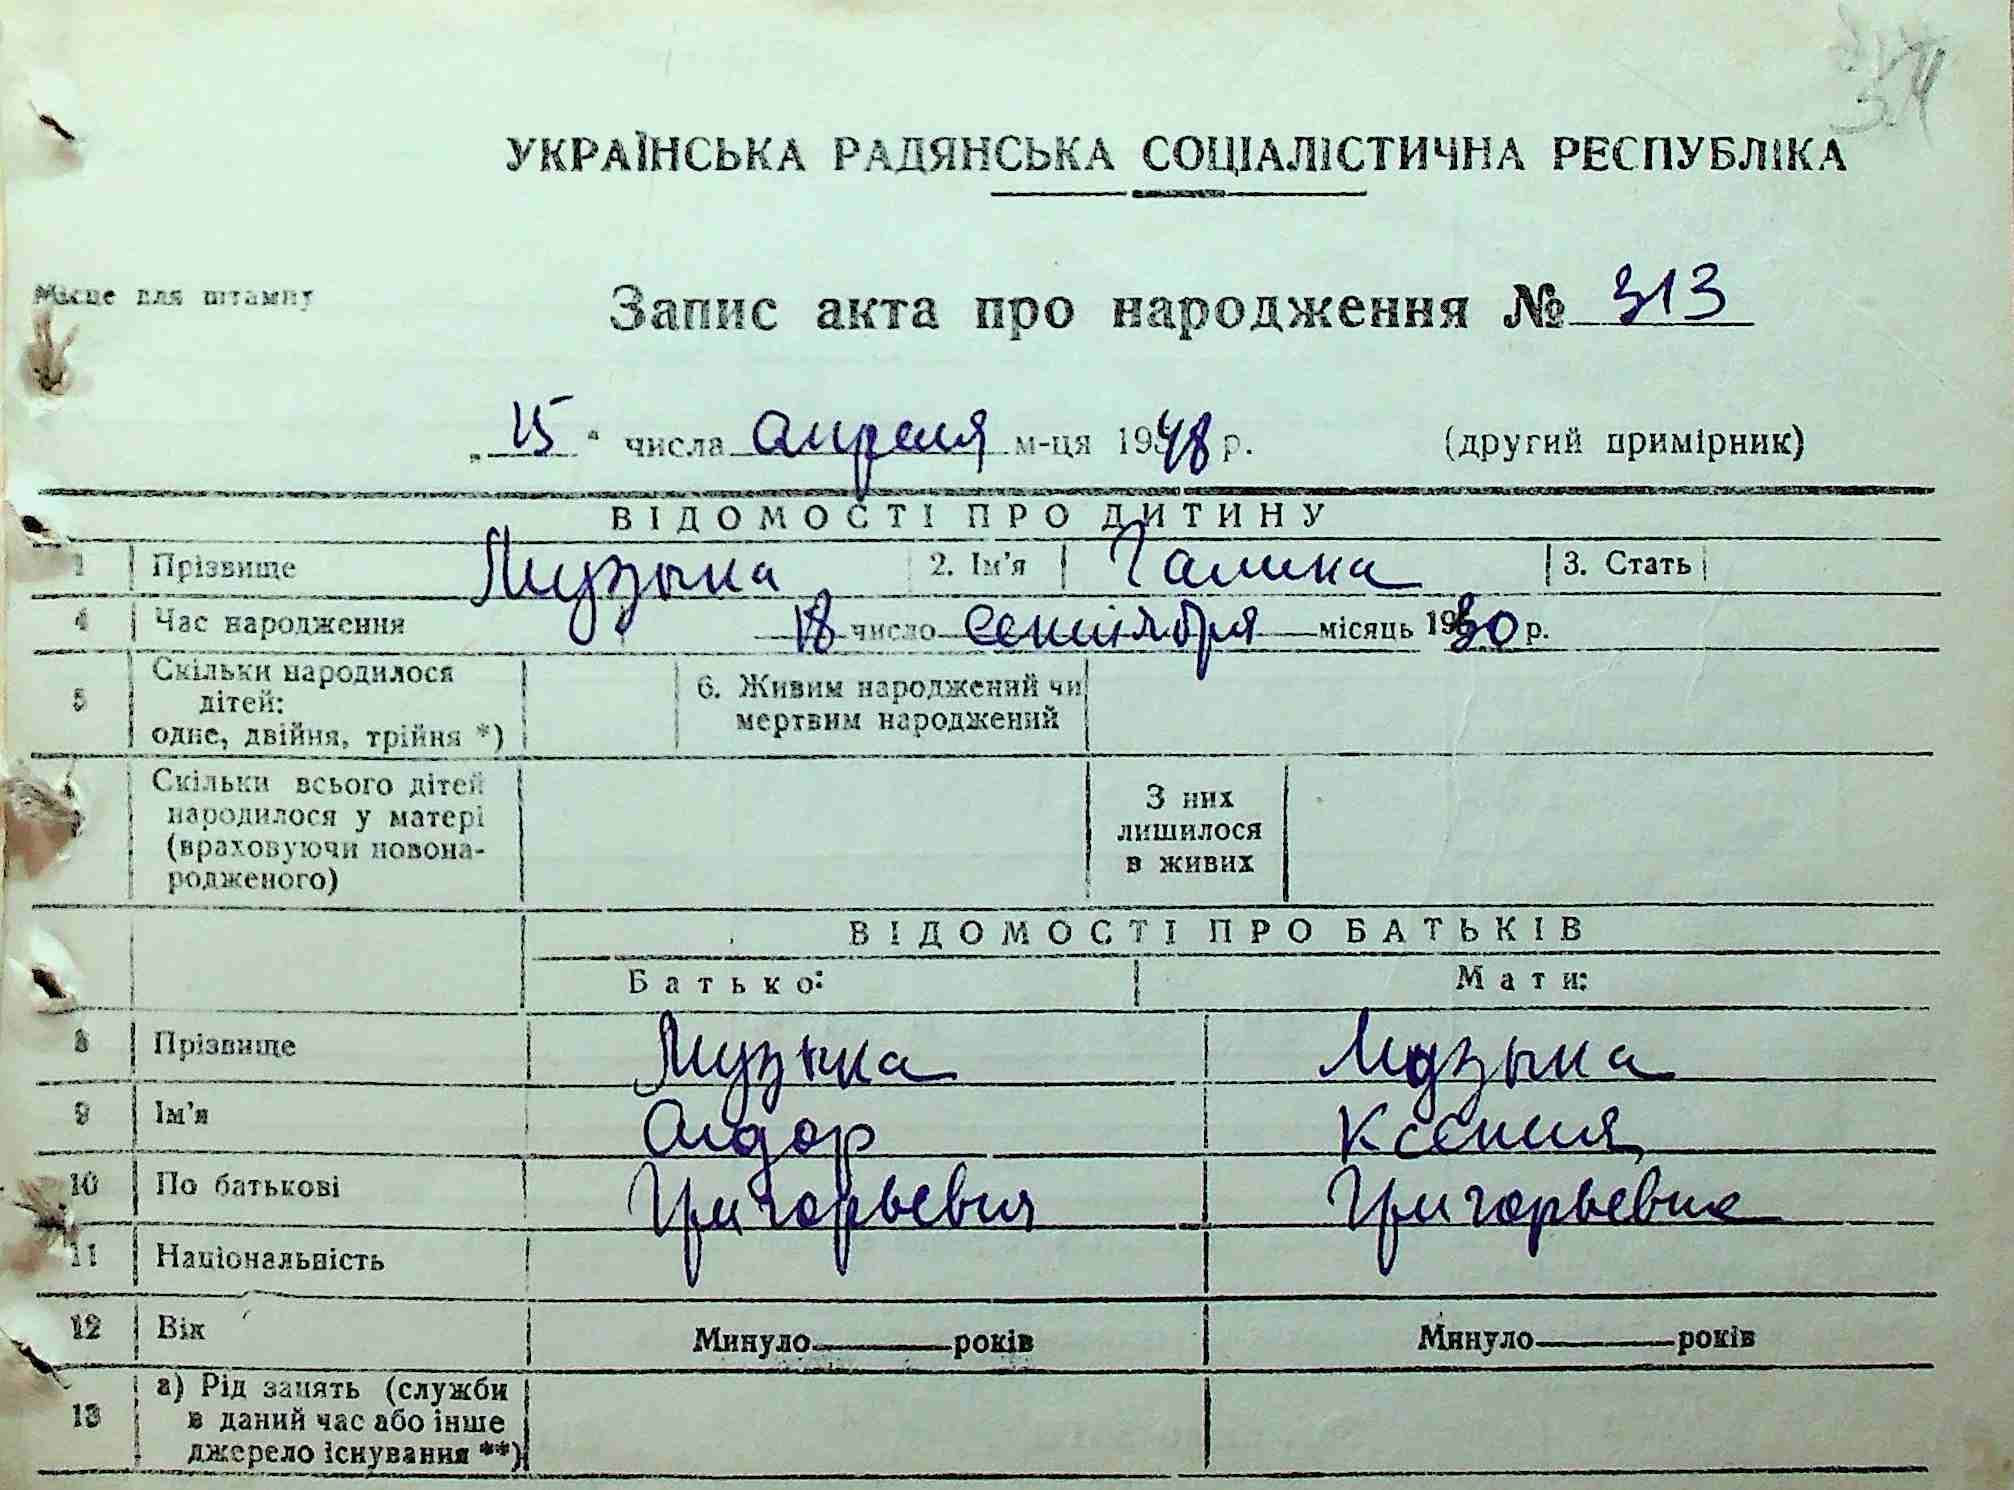 УКРАЇНСЬКА РАДЯНСЬКА СОЦІАЛІСТИЧНА РЕСПУБЛІКА
Місце для штампу
Запис акта про народження № 313
„15“ числа апреля м-ця 1948 р. (другий примірник)
ВІДОМОСТІ ПРО ДИТИНУ
1 Прізвище Музыка 2. Ім’я Галина 3. Стать
4 Час народження 18 число сентября місяць 1930 р.
5 Скільки народилося
дітей:
одне, двійня, трійня *)
6. Живим народжений чи
мертвим народжений
Скільки всього дітей
народилося у матері
(враховуючи новона-
родженого)
З них
лишилося
в живих
ВІДОМОСТІ ПРО БАТЬКІВ
Батько: Мати:
8 Прізвище Музыка Музыка
9 Ім’я Сидор Ксения
10 По батькові Григорьевич Григорьевна
11 Національність
12 Вік Минуло років Минуло років
13 а) Рід занять (служби
в даний час або інше
джерело існування **)